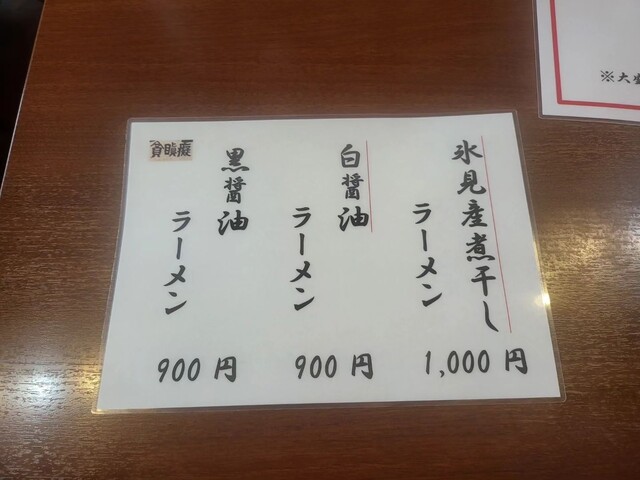 氷見産煮干し
ラーメン
1,000 円
白醤油
ラーメン
900 円
黒醤油
ラーメン
900 円
貪瞋癡
※大